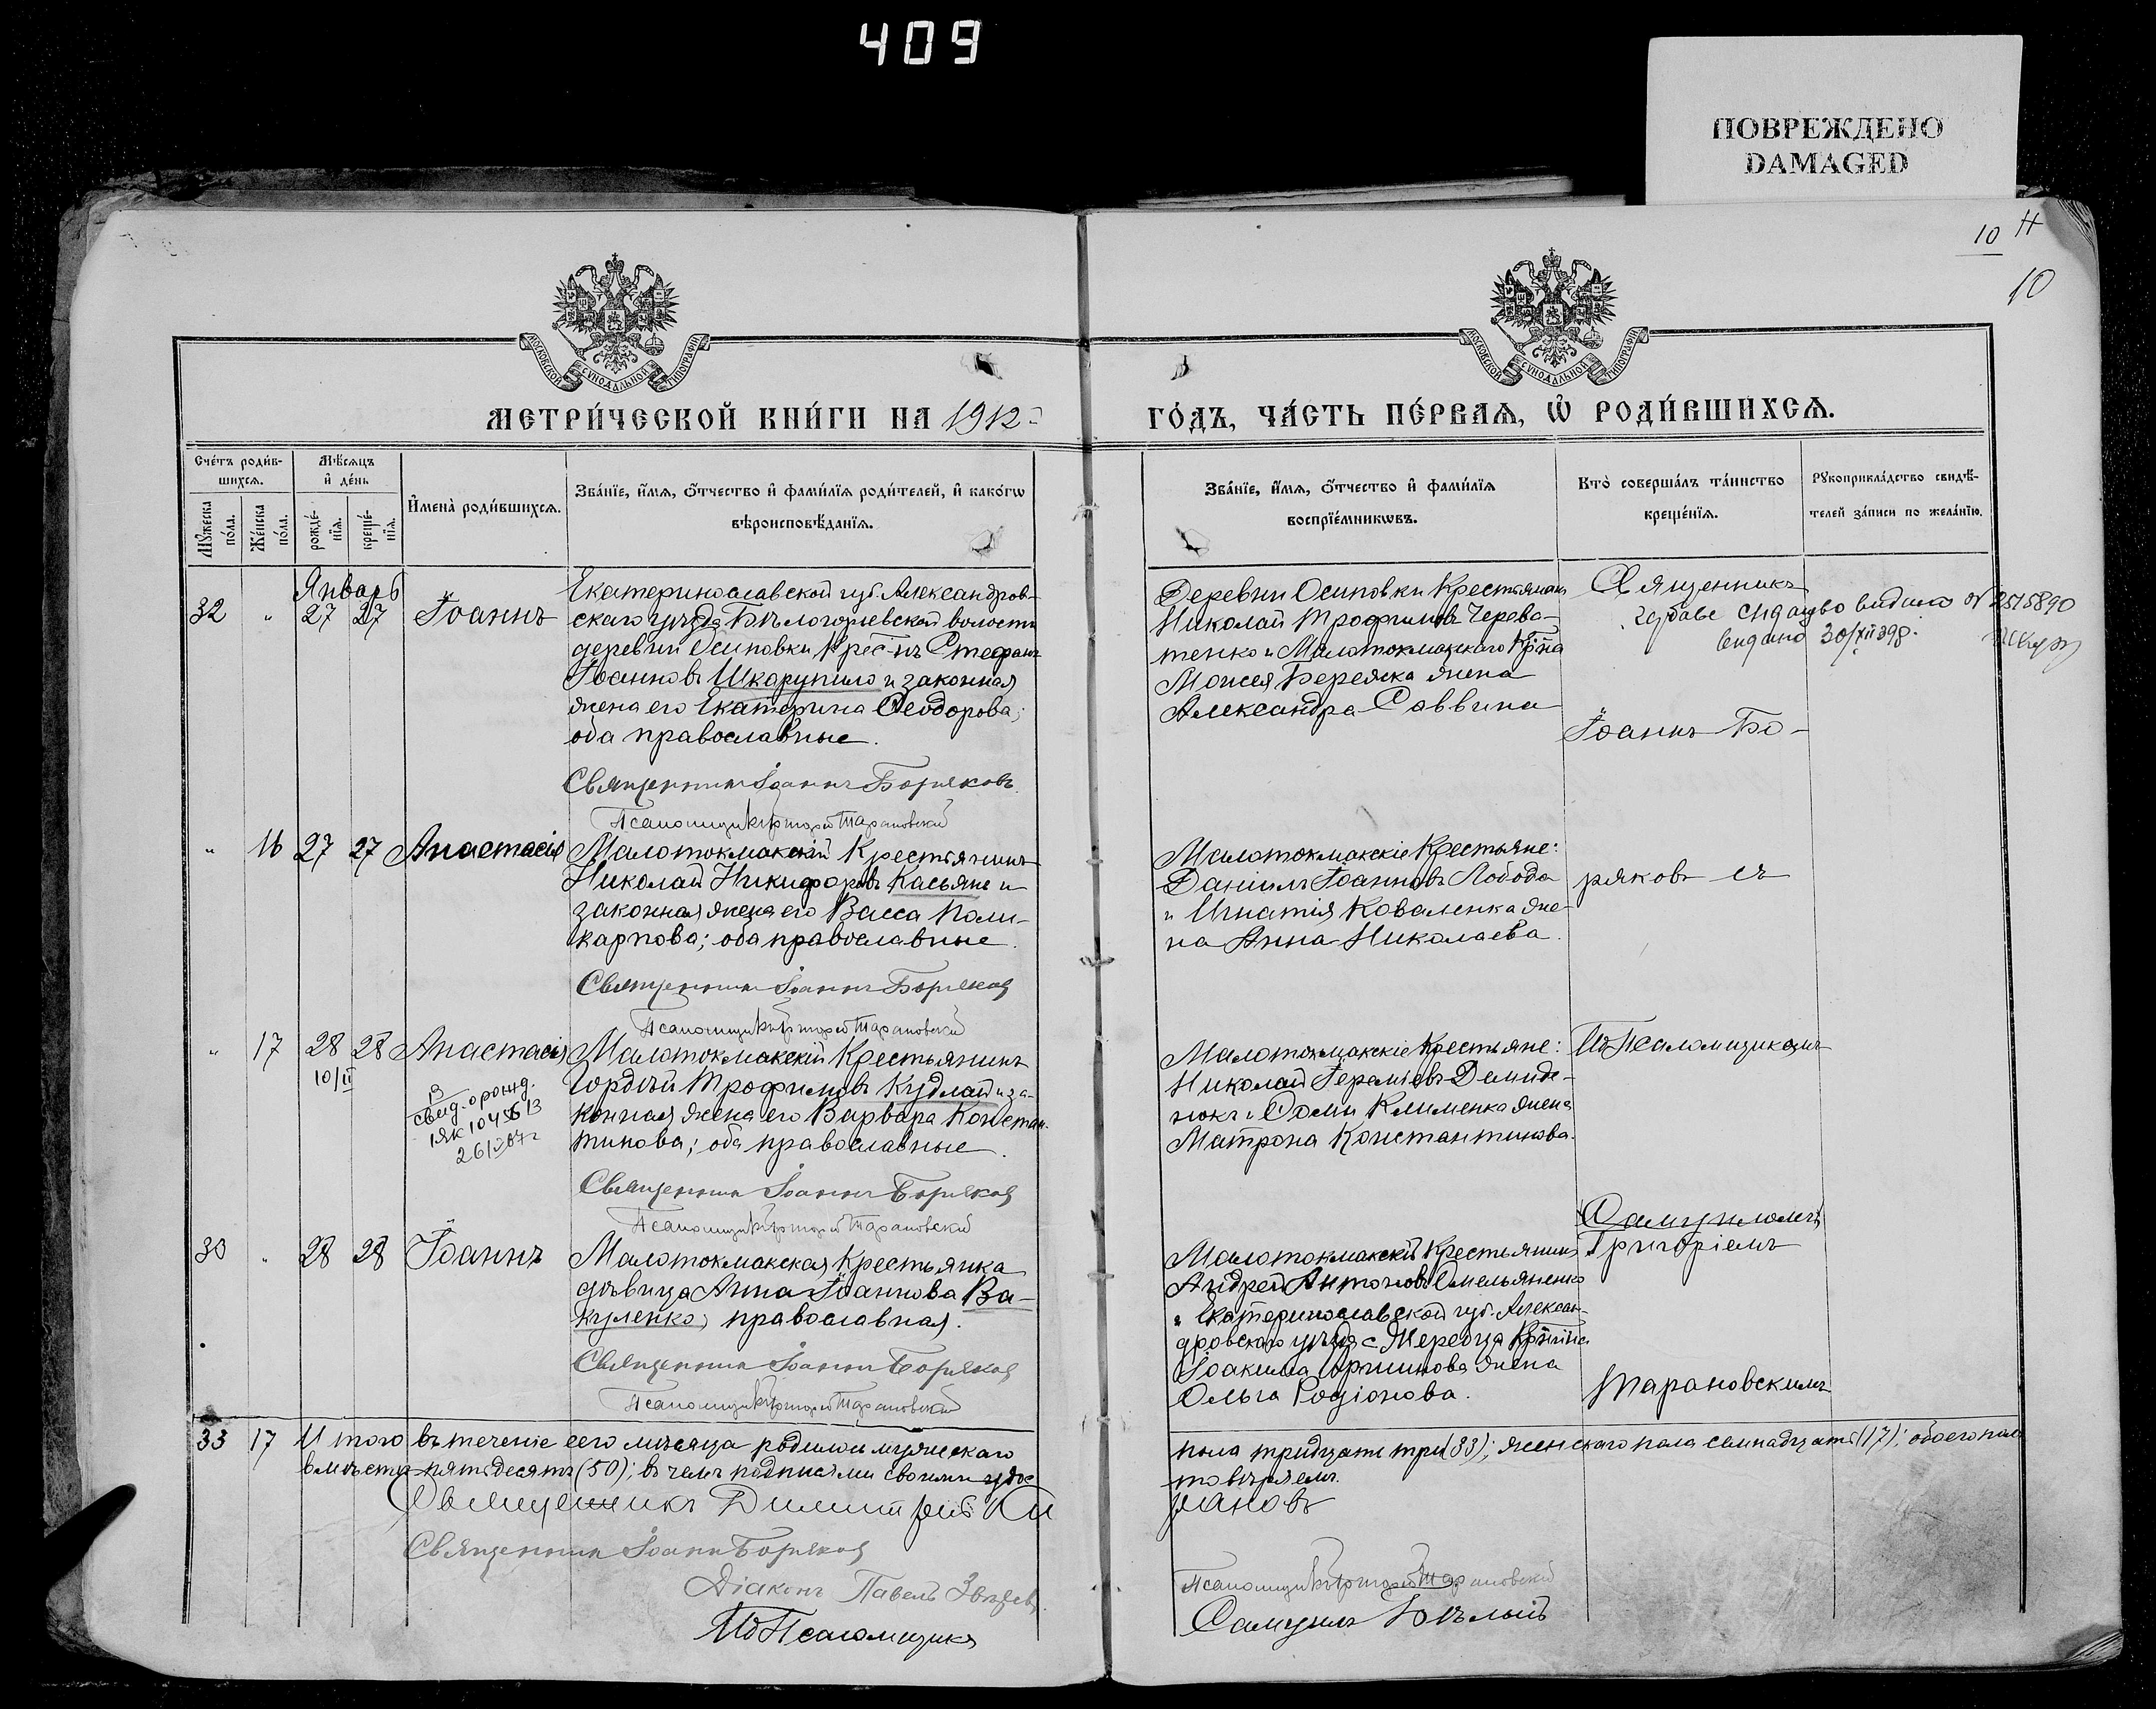 409
ПОВРЕЖДЕНО
DAMAGED
10 11
10
МОСКОВСКОЙ СѴНОДАЛЬНОЙ ТИПОГРАФІИ
МОСКОВСКОЙ СѴНОДАЛЬНОЙ ТИПОГРАФІИ
МЕТРИ́ЧЕСКОЙ КНИ́ГИ НА 1912
ГО́ДЪ, ЧА́СТЬ ПЕ́РВАѦ, Ѡ҆ РОДИ́ВШИХСѦ.
Счéтъ роди́в-
шихсѧ.
Мꙋ́жеска по́ла.
Же́нска по́ла.
Мѣ́сѧцъ
и҆ де́нь
рожде́-нїѧ.
креще́-нїѧ.
И҆мена̀ роди́вшихсѧ.
Зва́нїе, и҆́мѧ, ѻ҆́тчество и҆ фами́лїѧ роди́телей, и҆ како́гѡ
вѣроисповѣ́данїѧ.
Зва́нїе, и҆́мѧ, ѻ҆́тчество и҆ фами́лїѧ
воспрїе́мникѡвъ.
Кто̀ соверша́лъ та́инство
креще́нїѧ.
Рꙋкоприкла́дство свидѣ́-
телей за́писи по жела́нїю.
Январь
32 " 27 27 Іоаннъ
Екатеринославской губ. Александров-
скаго уѣзда Бѣлогорьевской волости
деревни Осиповки крест-нъ Стефанъ
Іоанновъ Шкарупило и законная
жена его Екатерина Ѳеодорова;
оба православные.
Священникъ Іоаннъ Боряковъ
Псаломщикъ Григорій Тарановскій
Деревни Осиповки крестьянинъ
Николай Трофимовъ Черева-
тенко и Малотокмакскаго кр-на
Моисея Бережка жена
Александра Саввина
Священникъ
видано 30/XII 39р.
Іоаннъ Бо-
" 16 27 27 Анастасія
Малотокмакскій крестьянинъ
Николай Никифоровъ Касьяне и
законная жена его Васса Поли-
карпова; оба православные.
Священникъ Іоаннъ Боряковъ
Псаломщикъ Григорій Тарановскій
Малотокмакскіе крестьяне:
Даніилъ Іоанновъ Лобода
и Игнатія Коваленка же-
на Анна Николаева.
ряковъ съ
" 17 28 28 Анастасія
10/II
свид. о рожд.
Малотокмакскій крестьянинъ
Гордѣй Трофимовъ Кудлай и за-
конная жена его Варвара Констан-
тинова; оба православные.
Священникъ Іоаннъ Боряковъ
Псаломщикъ Григорій Тарановскій
Малотокмакскіе крестьяне:
Николай Іереміевъ Демиде-
нокъ и Ѳомы Клименка жена
Матрона Константинова.
Ио Псаломщикомъ
Самуиломъ
30 " 28 28 Іоаннъ
Малотокмакская крестьянка
дѣвица Анна Іоаннова Ва-
куленко; православная.
Священникъ Іоаннъ Боряковъ
Псаломщикъ Григорій Тарановскій
Малотокмакскій крестьянинъ
Андрей Антоновъ Омельяненко
и Екатеринославской губ. Алексан-
дровскаго уѣзда с. Жеребца
Іоакима жена
Ольга Родіонова.
Григоріемъ
Тарановскимъ
33 17 Итого въ теченіе сего мѣсяца родилось мужескаго
пола тридцать три (33); женскаго пола семнадцать (17); обоего пола
вмѣстѣ пятьдесятъ (50); въ чемъ подписями своими удос-
товѣряемъ.
Священникъ Димитрій Ки
рановъ
Священникъ Іоаннъ Боряковъ
Діаконъ Павелъ
Псаломщикъ Григорій Тарановскій
Ио Псаломщика
Самуилъ Бѣлый